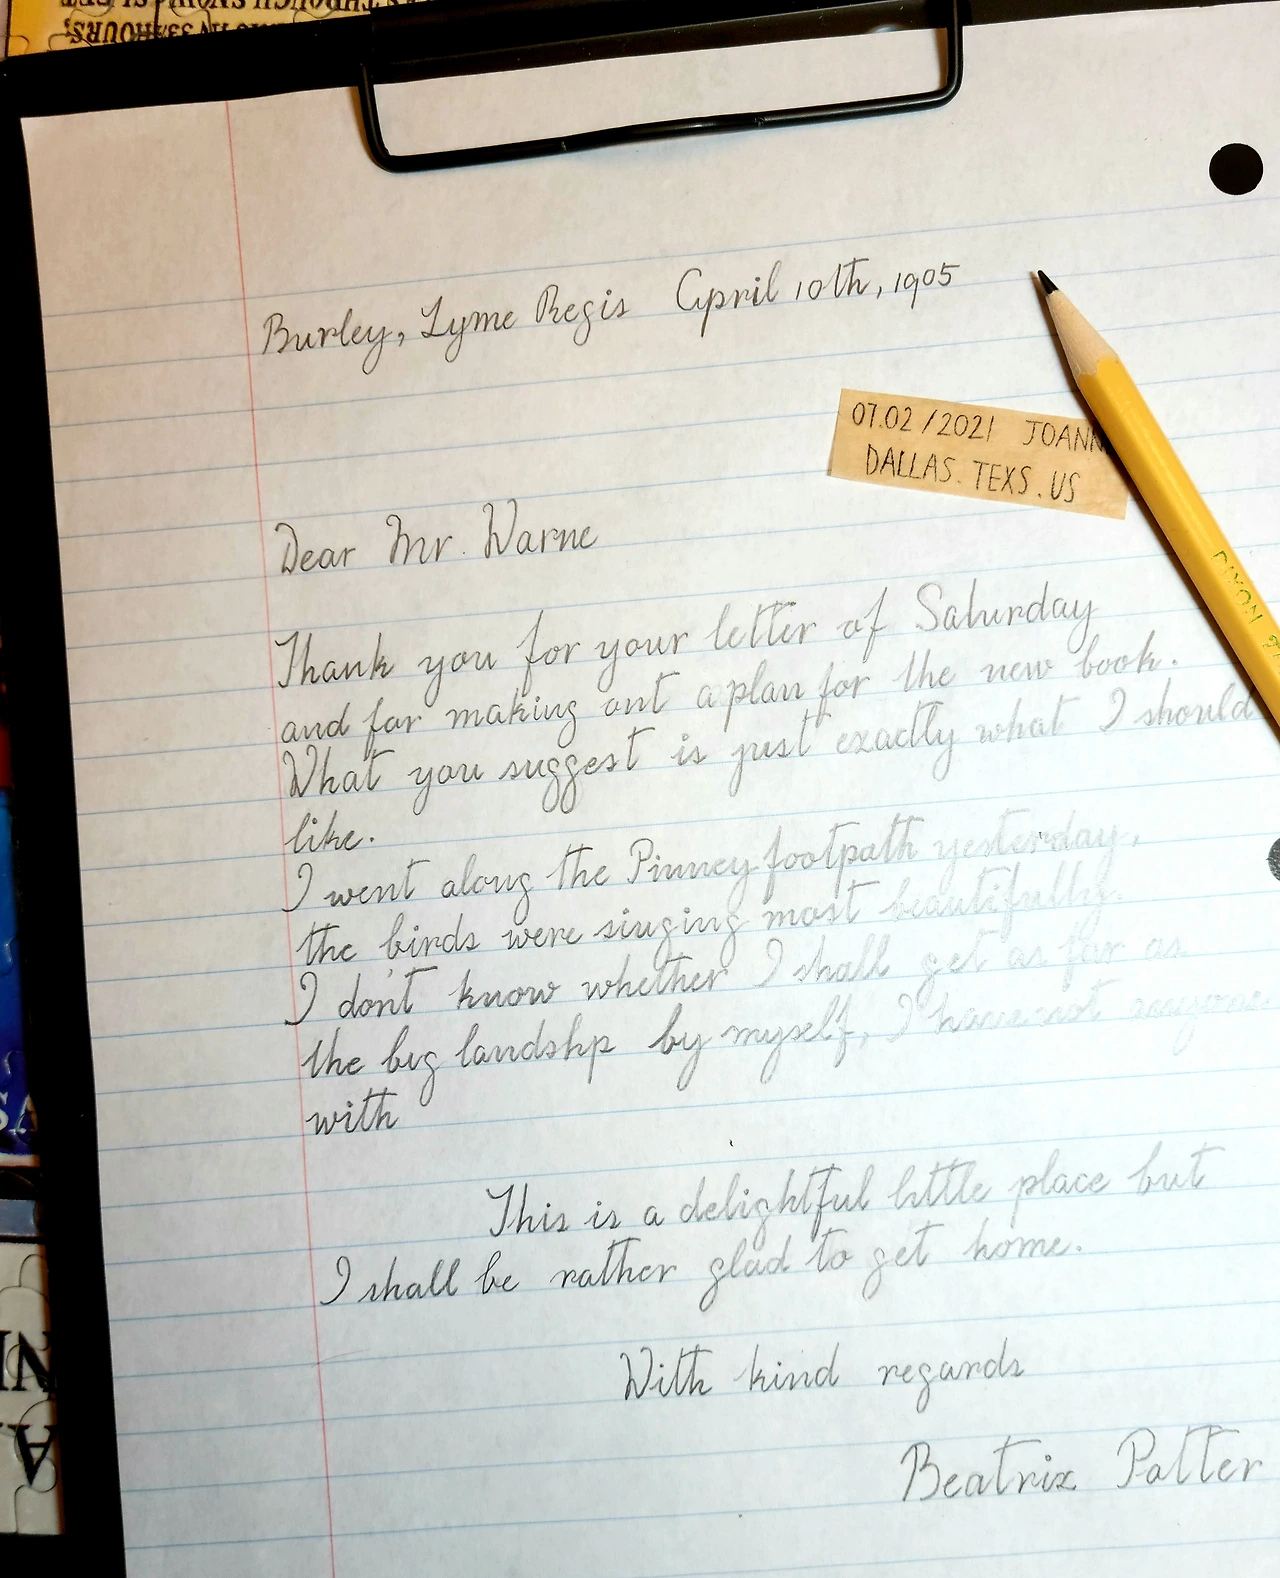 HOURS;
Burley, Lyme Regis April 10th, 1905
07.02/2021 JOANN
DALLAS. TEXS. US
DIXON
Dear Mr. Warne
Thank you for your letter of Saturday
and for making out a plan for the new book.
What you suggest is just exactly what I should
like.
I went along the Pinney footpath yesterday,
the birds were singing most beautifully.
I don't know whether I shall get as far as
the big landship by myself, I have not anyone
with
This is a delightful little place but
I shall be rather glad to get home.
With kind regards
Beatrix Potter